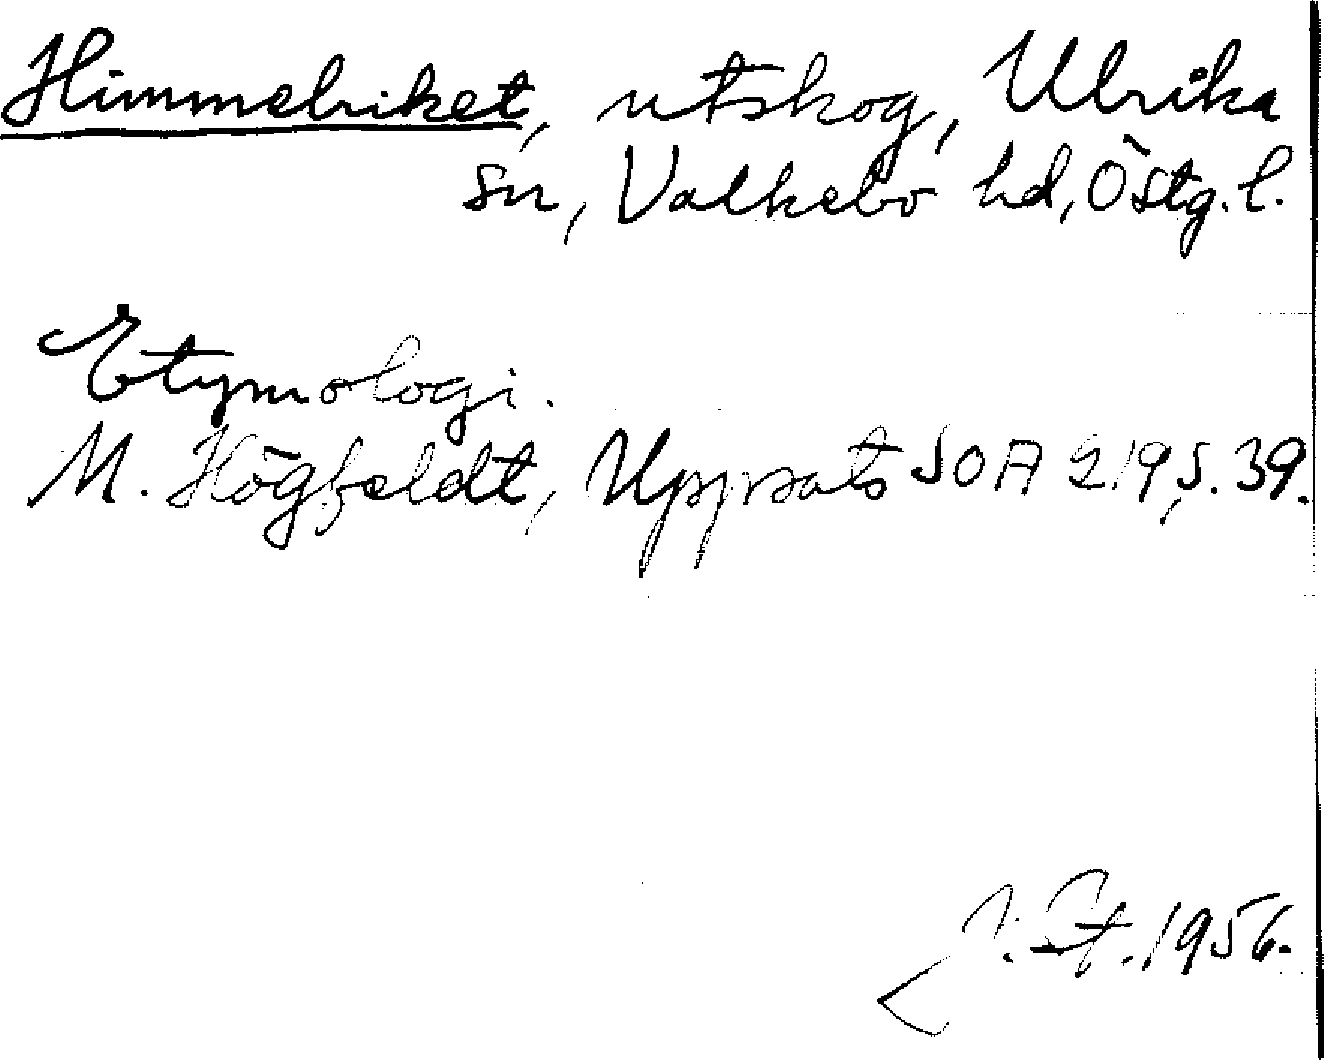 Himmelriket, utskog, Ulrika
sn, Valkebo hd, Östg. l.
Etymologi.
M. Högfeldt, Uppsats SOA 219, s. 39.
J. St. 1956.